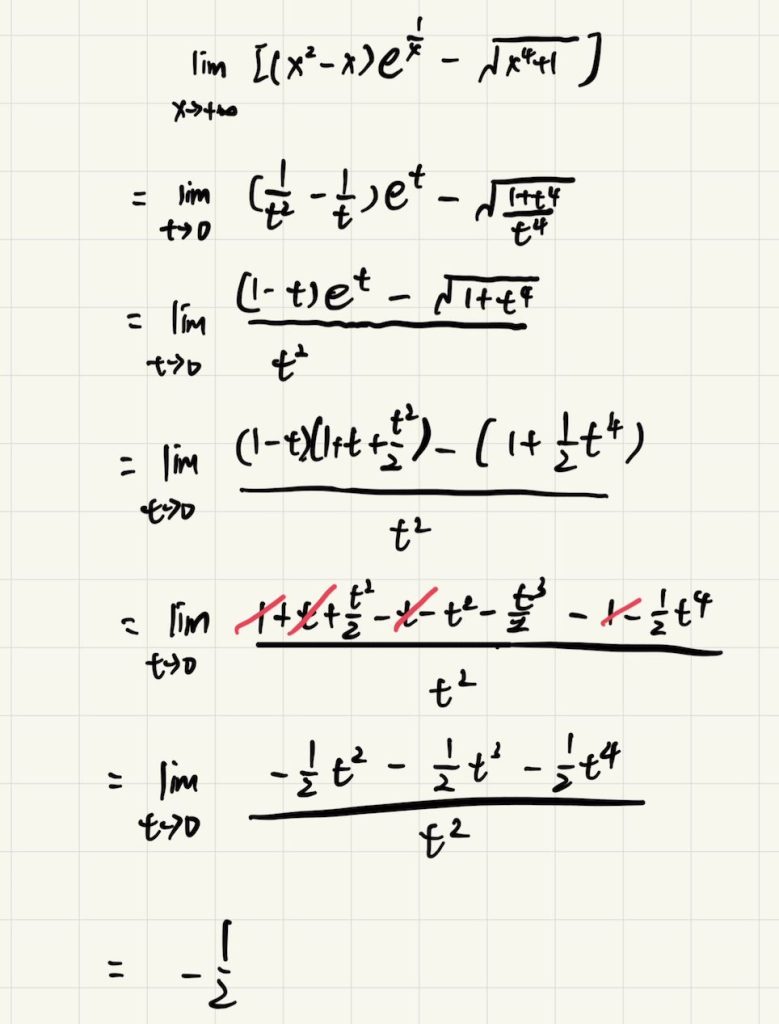 lim x→+∞ [(x²-x)e^(1/x) - √(x⁴+1)]
= lim t→0 (1/t² - 1/t)e^t - √((1+t⁴)/t⁴)
= lim t→0 ((1-t)e^t - √(1+t⁴))/t²
= lim t→0 ((1-t)(1+t+t²/2) - (1+½t⁴))/t²
= lim t→0 (1+t+t²/2-t-t²-t³/2 - 1-½t⁴)/t²
= lim t→0 (-½t² - ½t³ - ½t⁴)/t²
= -½